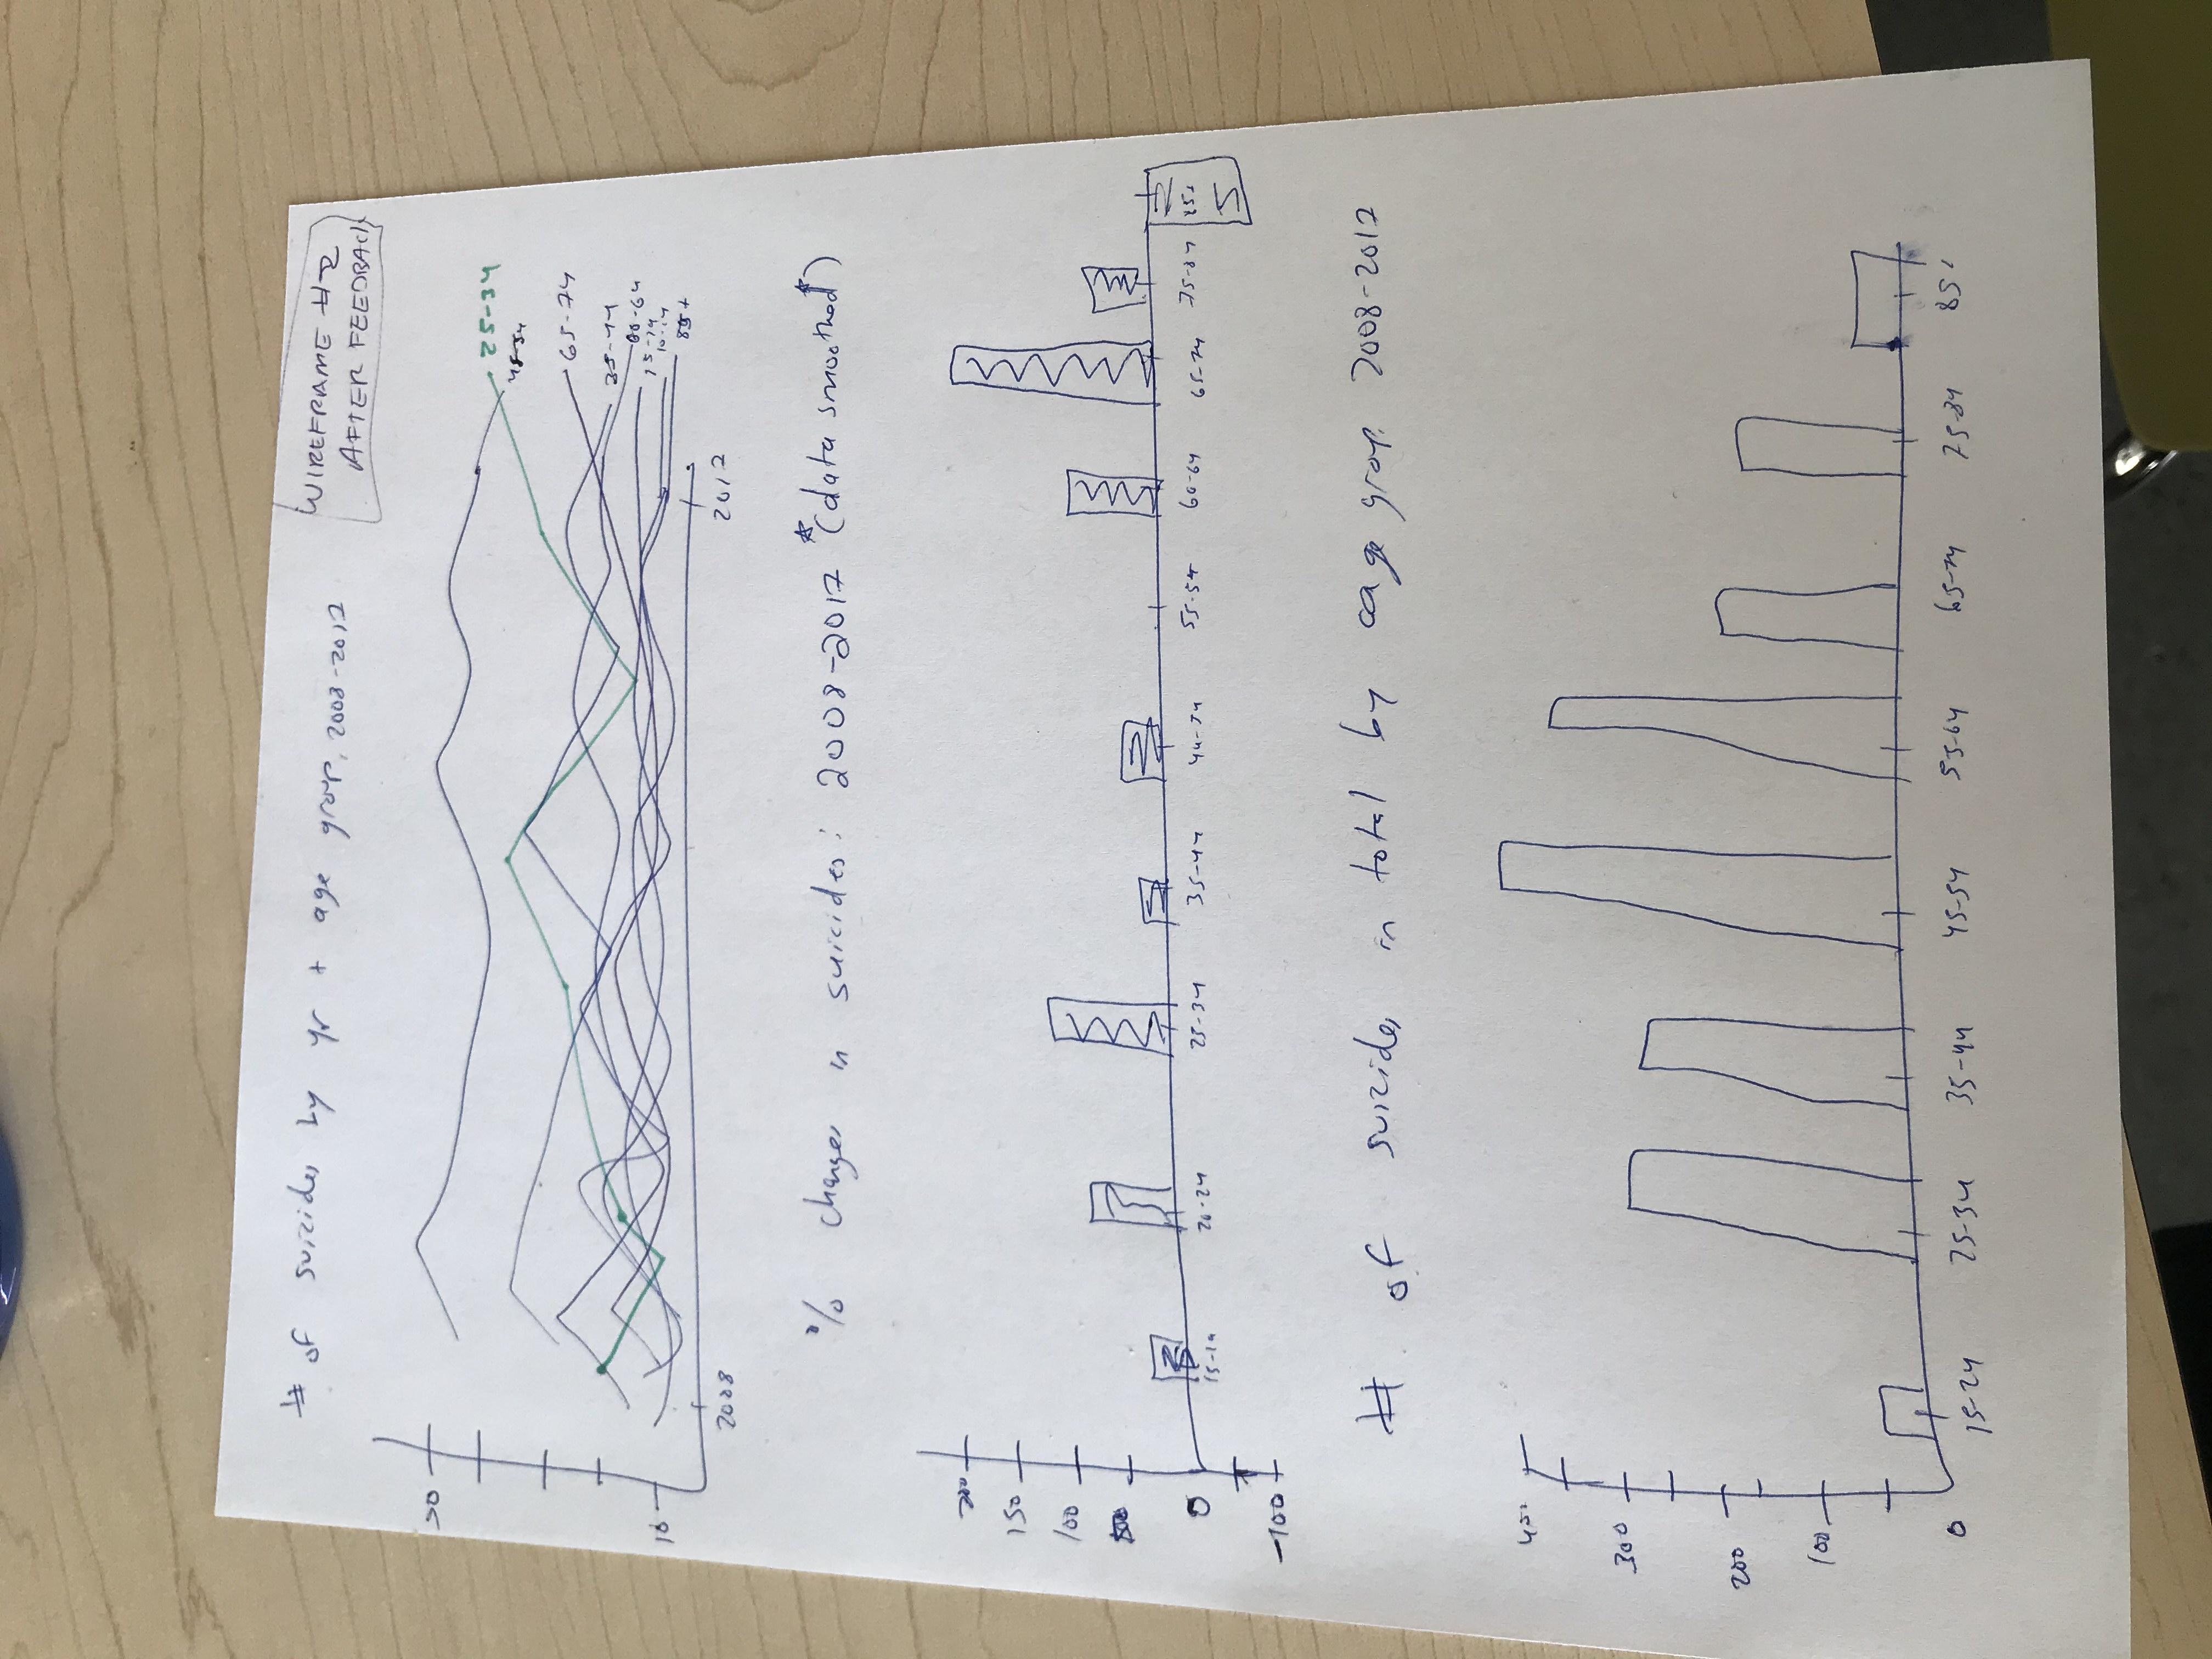 # of suicides by yr + age group, 2008-2017
WIREFRAME #2
AFTER FEEDBACK
30
10
25-34
45-54
65-74
35-44
60-64
10-14
85+
2008
2017
% changes in suicides: 2008-2017 *(data smoothed*)
200
150
100
0
-100
15-19
20-24
25-34
35-44
44-54
55-59
60-64
65-74
75-84
85+
# of suicides in total by age group. 2008-2017
400
300
200
100
0
15-24
25-34
35-44
45-54
55-64
65-74
75-84
85+